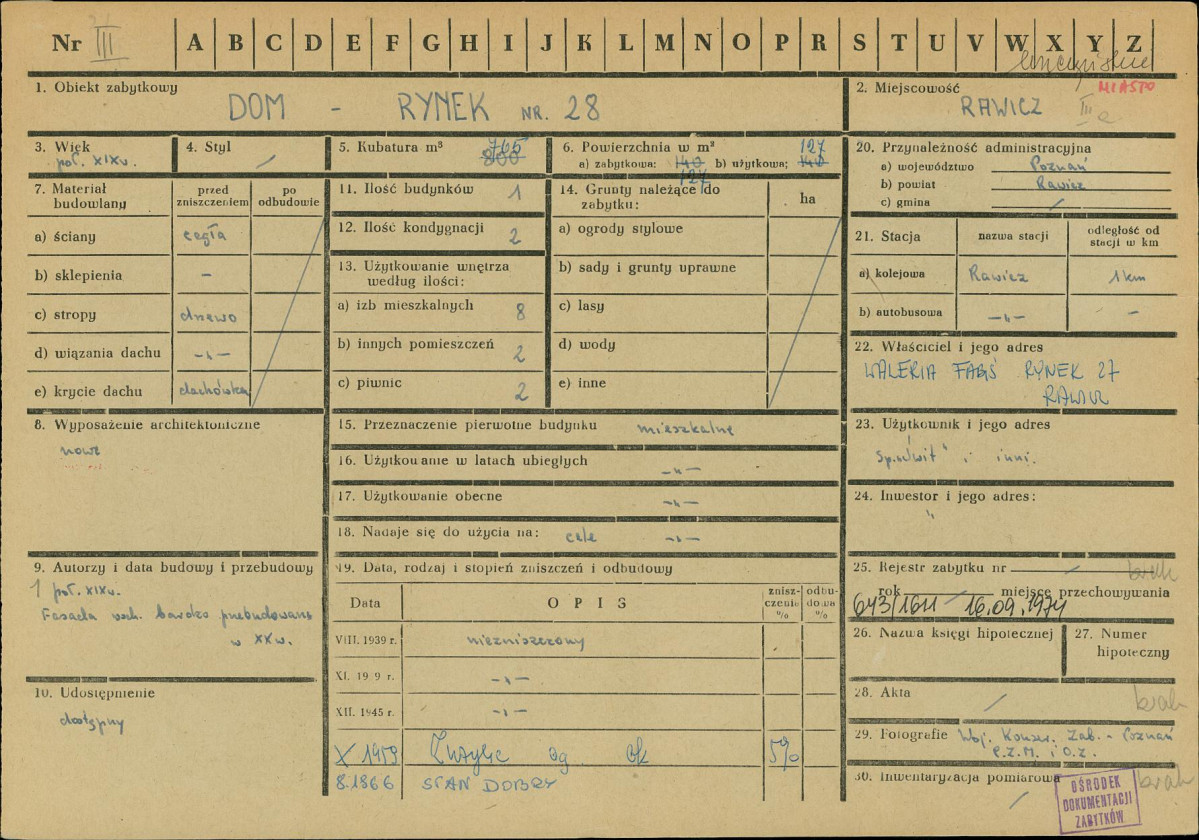 Nr III A B C D E F G H I J K L M N O P R S T U V W X Y Z
1. Obiekt zabytkowy
DOM - RYNEK NR. 28
2. Miejscowość MIASTO
RAWICZ III a
3. Wiek
poł. XIXw.
4. Styl
/
5. Kubatura m³ 765
800
6. Powierzchnia w m² 127
a) zabytkowa: 140 b) użytkowa: 140
127
20. Przynależność administracyjna
a) województwo Poznań
b) powiat Rawicz
c) gmina /
7. Materiał budowlany
przed zniszczeniem
po odbudowie
a) ściany cegła
b) sklepienia –
c) stropy drzewo
d) wiązania dachu –"–
e) krycie dachu dachówka
11. Ilość budynków 1
12. Ilość kondygnacji 2
13. Użytkowanie wnętrza
według ilości:
a) izb mieszkalnych 8
b) innych pomieszczeń 2
c) piwnic 2
14. Grunty należące do
zabytku:
ha
a) ogrody stylowe
b) sady i grunty uprawne
c) lasy
d) wody
e) inne
21. Stacja
nazwa stacji
odległość od
stacji w km
a) kolejowa Rawicz 1 km
b) autobusowa –"– –
22. Właściciel i jego adres
WALERIA FABŚ RYNEK 27
8. Wyposażenie architektoniczne
nowe
15. Przeznaczenie pierwotne budynku mieszkalne
16. Użytkowanie w latach ubiegłych –"–
17. Użytkowanie obecne –"–
18. Nadaje się do użycia na: cele –"–
23. Użytkownik i jego adres
i inni.
24. Inwestor i jego adres:
"
9. Autorzy i data budowy i przebudowy
1 poł. XIXw.
Fasada wsch. bardzo przebudowana
w XXw.
10. Udostępnienie
dostępny
19. Data, rodzaj i stopień zniszczeń i odbudowy
Data
OPIS
znisz-
czenie
%
odbu-
dowa
%
VIII. 1939 r. niezniszczony
XI. 19 9 r. –"–
XII. 1945 r. –"–
X 1959 Zużycie og ok 5%
8.1966 STAN DOBRY
25. Rejestr zabytku nr / brak
rok miejsce przechowywania
643/1611 16.09.1974
26. Nazwa księgi hipotecznej
27. Numer
hipoteczny
28. Akta / brak
29. Fotografie Woj. Konser. Zab. - Poznań
P.Z.M. i O.Z.
30. Inwentaryzacja pomiarowa brak
/
OŚRODEK
DOKUMENTACJI
ZABYTKÓW